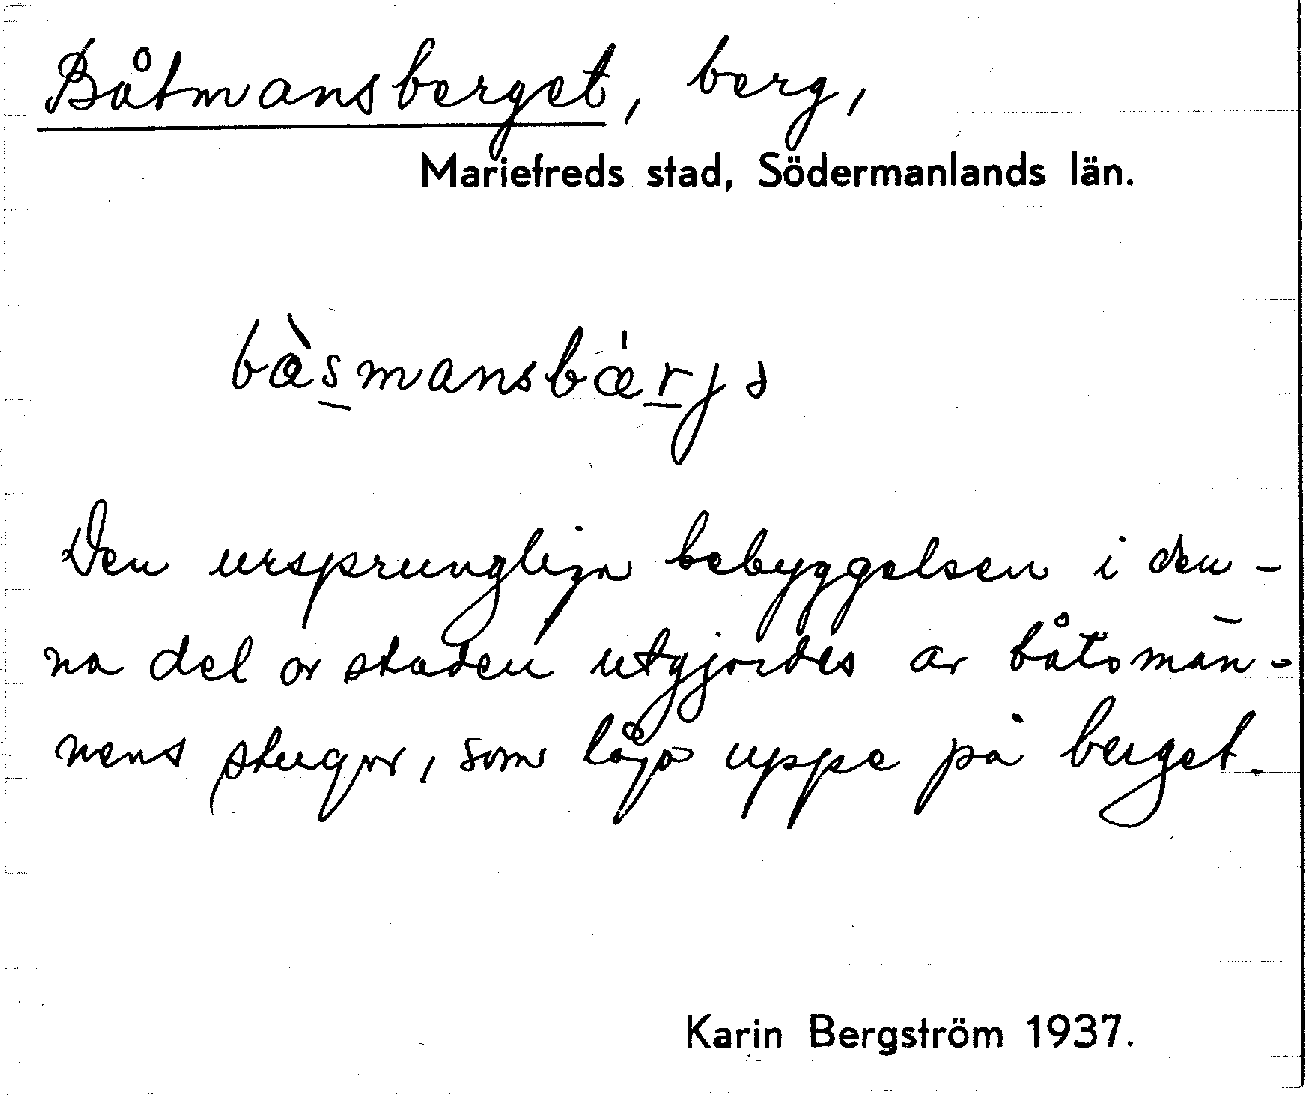 Båtmansberget, berg,
Mariefreds stad, Södermanlands län.
bàsmansbærjə
Den ursprungliga bebyggelsen i den-
na del av staden utgjordes av båtsmän-
nens stugor, som lågo uppe på berget.
Karin Bergström 1937.